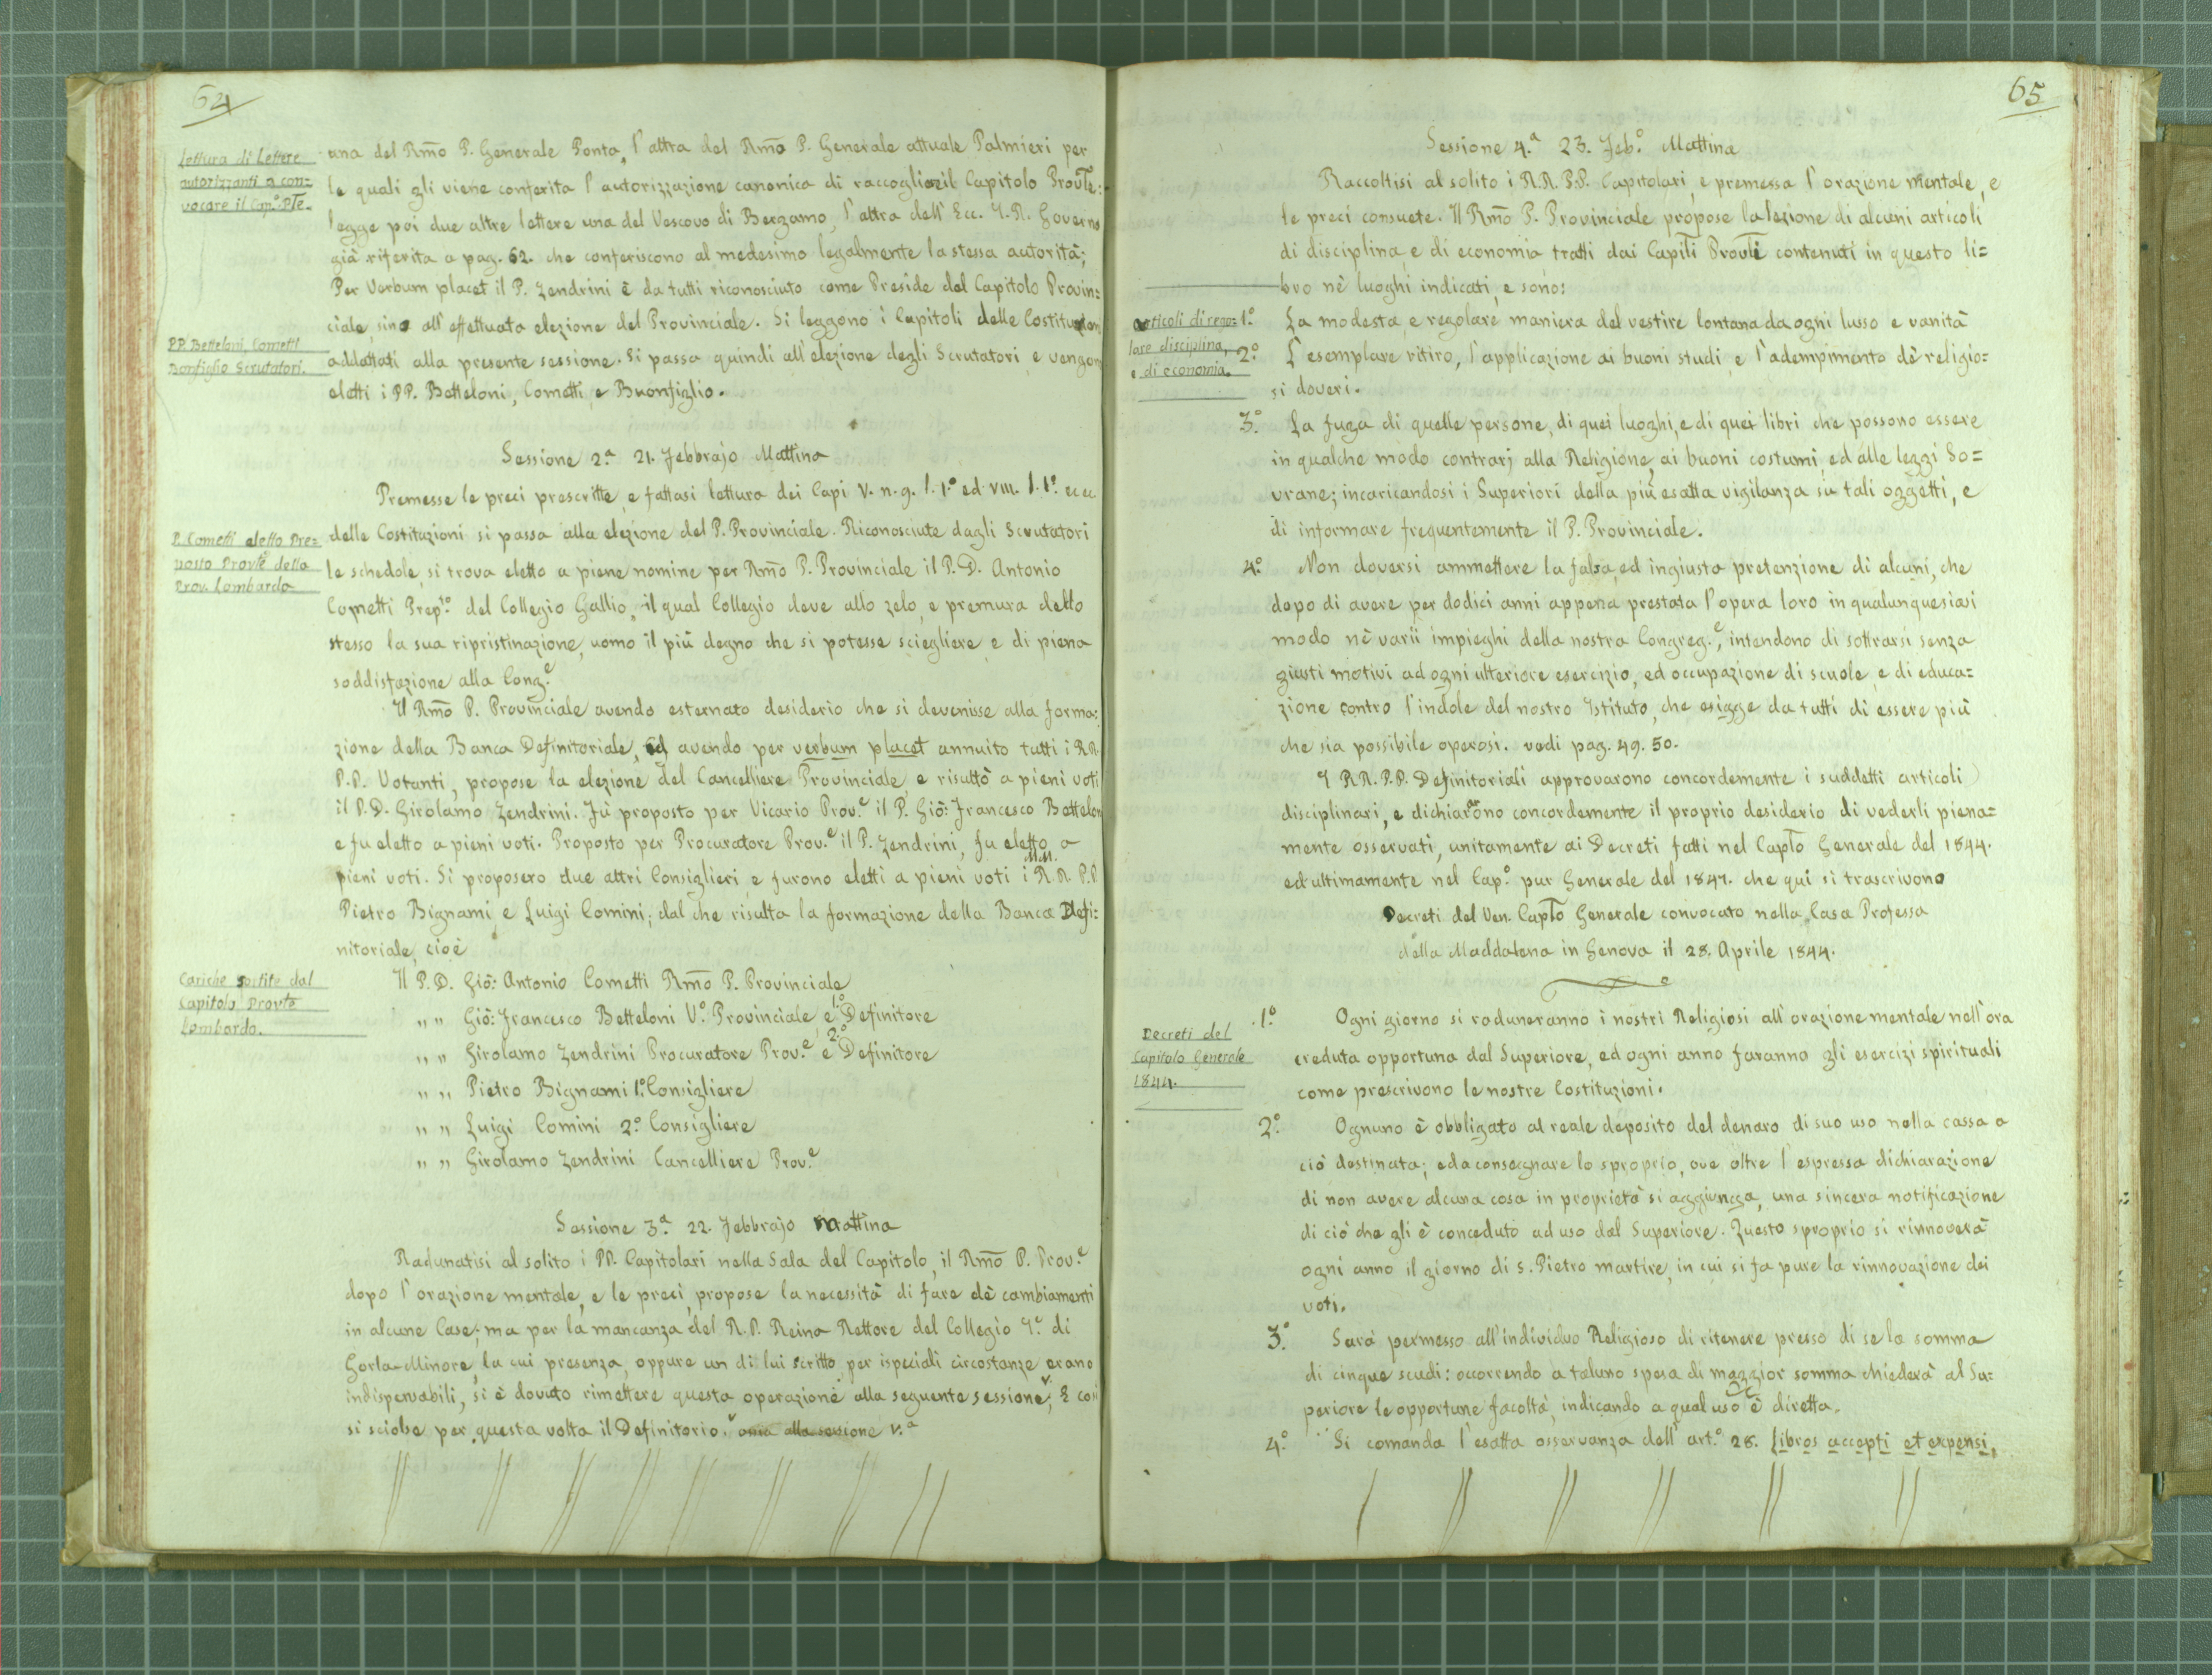 64
Lettura di Lettere
autorizzanti a con=
vocare il Cap.º Ple.
una del Rm̃o P. Generale Ponta, l'altra del Rm̃o P. Generale attuale Palmieri per
le quali gli viene conferita l'autorizzazione canonica di raccoglier il Capitolo Provle:
legge poi due altre lettere una del Vescovo di Bergamo, l'altra dell'Ecc. I. R. Governo
già riferita a pag. 62. che conferiscono al medesimo legalmente la stessa autorità;
Per Verbum placet il P. Zendrini è da tutti riconosciuto come Preside del Capitolo Provin=
ciale, sino all'effettuata elezione del Provinciale. Si leggono i Capitoli delle Costituzioni
PP. Betteloni, Cometti
Bonfiglio Scrutatori.
addattati alla presente sessione. Si passa quindi all'elezione degli Scrutatori, e vengono
eletti i PP. Betteloni, Cometti, e Buonfiglio.
Sessione 2.ª 21. Febbrajo Mattina
Premesse le preci prescritte, e fattasi lettura dei Capi V. n. 9. l. 1.º ed VIII. l. 1.º
P. Cometti eletto Pre=
posto Provle della
Prov. Lombarda
delle Costituzioni si passa alla elezione del P. Provinciale. Riconosciute dagli Scrutatori
le schedole, si trova eletto a piene nomine per Rm̃o P. Provinciale il P. D. Antonio
Cometti Prep.to del Collegio Gallio, il qual Collegio deve allo zelo, e premura dello
stesso la sua ripristinazione, uomo il più degno che si potesse sciegliere, e di piena
soddisfazione alla Cong.e
Il Rm̃o P. Provinciale avendo esternato desiderio che si devenisse alla forma=
zione della Banca Definitoriale, ed avendo per verbum placet annuito tutti i RR.
P.P. Votanti, propose la elezione del Cancelliere Provinciale, e risultò a pieni voti
il P. D. Girolamo Zendrini. Fù proposto per Vicario Prov.e il P. Giò: Francesco Betteloni
e fu eletto a pieni voti. Proposto per Procuratore Prov.e il P. Zendrini, fu eletto a
pieni voti. Si proposero due altri Consiglieri, e furono eletti a pieni voti i M. R. R. P.P.
Pietro Bignami, e Luigi Comini; dal che risulta la formazione della Banca Defi=
nitoriale, cioè
Cariche sortite dal
Capitolo Provle
Lombardo.
Il P. D. Giò: Antonio Cometti Rm̃o P. Provinciale
" " Giò: Francesco Betteloni V.º Provinciale, e 1.º Definitore
" " Girolamo Zendrini Procuratore Prov.e e 2.º Definitore
" " Pietro Bignami 1.º Consigliere
" " Luigi Comini 2.º Consigliere
" " Girolamo Zendrini Cancelliere Prov.e
Sessione 3.ª 22. Febbrajo Mattina
Radunatisi al solito i PP. Capitolari nella Sala del Capitolo, il Rm̃o P. Prov.e
dopo l'orazione mentale, e le preci, propose la necessità di fare dè cambiamenti
in alcune Case; ma per la mancanza del R. P. Reina Rettore del Collegio I.e di
Gorla-Minore, la cui presenza, oppure un di lui scritto per ispeciali circostanze erano
indispensabili, si è dovuto rimettere questa operazione alla seguente sessione, E così
si sciolse per questa volta il Definitorio. ossia alla sessione V.ª
65
Sessione 4.ª 23. Feb.º Mattina
Raccoltisi al solito i R.R. P.P. Capitolari, e premessa l'orazione mentale, e
le preci consuete. Il Rm̃o P. Provinciale propose la lezione di alcuni articoli
di disciplina, e di economia, tratti dai Capiti Provli contenuti in questo li=
bro nè luoghi indicati, e sono:
articoli di rego=
lare disciplina,
e di economia.
1.º La modesta, e regolare maniera del vestire lontana da ogni lusso e vanità
2.º L'esemplare ritiro, l'applicazione ai buoni studi, e l'adempimento dè religio=
si doveri.
3.º La fuga di quelle persone, di quei luoghi, e di quei libri che possono essere
in qualche modo contrarj alla Religione, ai buoni costumi, ed alle leggi So=
vrane; incaricandosi i Superiori della più esatta vigilanza su tali oggetti, e
di informare frequentemente il P. Provinciale.
4.º Non doversi ammettere la falsa, ed ingiusta pretenzione di alcuni, che
dopo di avere per dodici anni appena prestata l'opera loro in qualunquesiasi
modo nè varii impieghi della nostra Congreg.e, intendono di sottrarsi senza
giusti motivi ad ogni ulteriore esercizio, ed occupazione di scuole, e di educa=
zione contro l'indole del nostro Istituto, che esigge da tutti di essere più
che sia possibile operosi. vedi pag. 49. 50.
I RR. P.P. Definitoriali approvarono concordemente i suddetti articoli
disciplinari, e dichiararono concordemente il proprio desiderio di vederli piena=
mente osservati, unitamente ai Decreti fatti nel Capto Generale del 1844.
ed ultimamente nel Cap.º pur Generale del 1847. che qui si trascrivono
Decreti del Ven. Capto Generale convocato nella Casa Professa
della Maddalena in Genova il 28. Aprile 1844.
Decreti del
Capitolo Generale
1844.
1.º Ogni giorno si raduneranno i nostri Religiosi all'orazione mentale nell'ora
creduta opportuna dal Superiore, ed ogni anno faranno gli esercizi spirituali
come prescrivono le nostre Costituzioni.
2.º Ognuno è obbligato al reale deposito del denaro di suo uso nella cassa a
ciò destinata; ed a consegnare lo sproprio, ove oltre l'espressa dichiarazione
di non avere alcuna cosa in proprietà si aggiunga, una sincera notificazione
di ciò che gli è conceduto ad uso dal Superiore. Questo sproprio si rinnoverà
ogni anno il giorno di S. Pietro martire, in cui si fa pure la rinnovazione dei
voti.
3.º Sarà permesso all'individuo Religioso di ritenere presso di se la somma
di cinque scudi: occorrendo a taluno spesa di maggior somma chiederà al Su=
periore le opportune facoltà, indicando a qual uso è diretta.
4.º Si comanda l'esatta osservanza dell'art.º 28. Libros accepti et expensi,